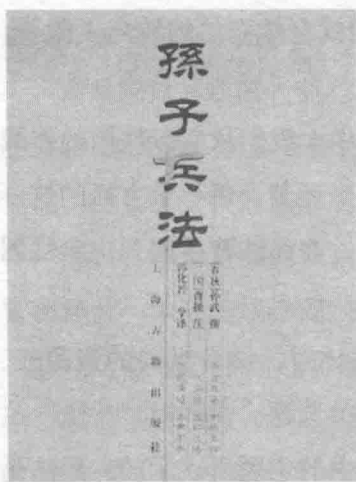 孫子兵法
春秋 孙武 撰
三国 曹操 注
郭化若 今译
上海古籍出版社